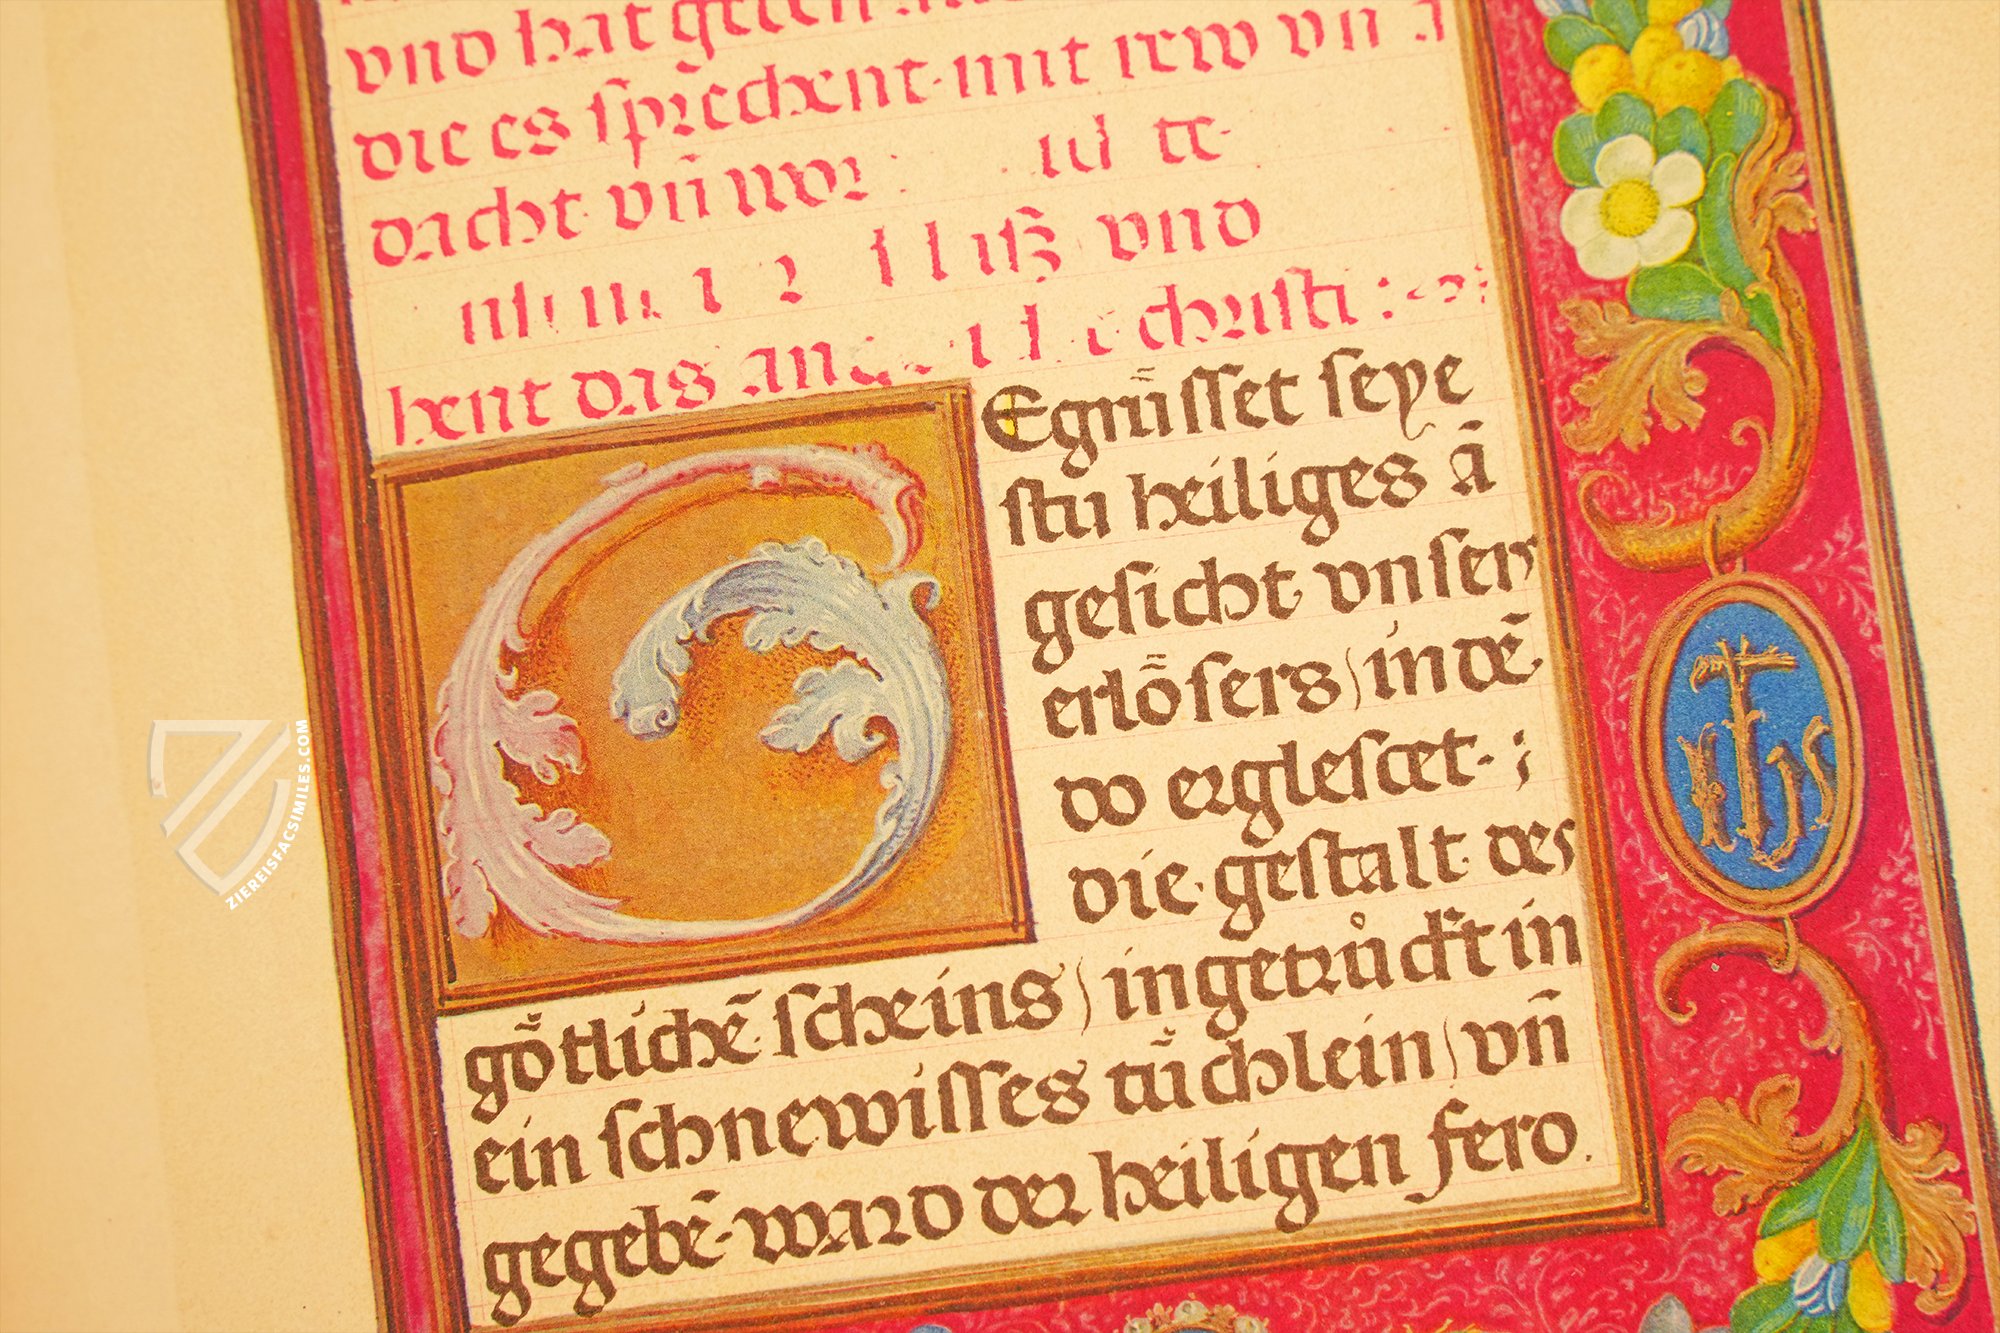 vnd hat geben
die es sprechent mit rew vn̄ a
dacht vn̄ wor
liß vnd
hent das christi
Egrüsset seye
stu heiliges ā
gesicht vnsers
erlösers) in dē
do erglescet·
die gestalt des
götlichē scheins) ingetrůckt in
ein schnewisses tüchlein) vn̄
gegebē ward der heiligen fero.
IHS
ZIEREISFACSIMILES.COM